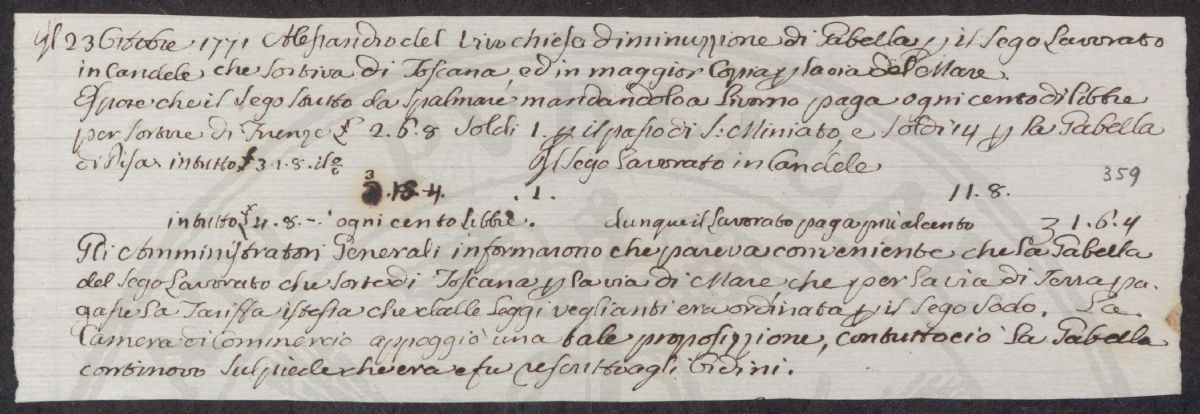 Il 23 Ottobre 1771 Alessandro del Vivo chiese diminuzzione di Gabella p il sego Lavorato
in Candele che sortiva di Toscana, ed in maggior Copia p la via del Mare.
Espone che il sego strutto da spalmare mandandolo a Livorno paga ogni cento di libbre
per sortire di Firenze £ 2. 6. 8 Soldi 1. p il passo di S: Miniato, e Soldi 14 p la Gabella
di Pisa intutto £ 3. 1. 8. il % Il sego Lavorato in Candele
3. 15. 4. . 1. 11. 8. 359
intutto £ 4. 8. - ogni cento Libbre. dunque il Lavorato paga più al cento £ 1. 6. 4
Gli Amministratori Generali informarono che pareva conveniente che la Gabella
del sego Lavorato che sorte di Toscana p la via di Mare che per la via di Terra pa-
gasse la Tariffa istessa che dalle Leggi veglianti era ordinata p il sego sodo. La
Camera di Commercio appoggiò una tale proposizzione, contuttociò la Gabella
continovò sul piede che era e fu rescritto agli Ordini.